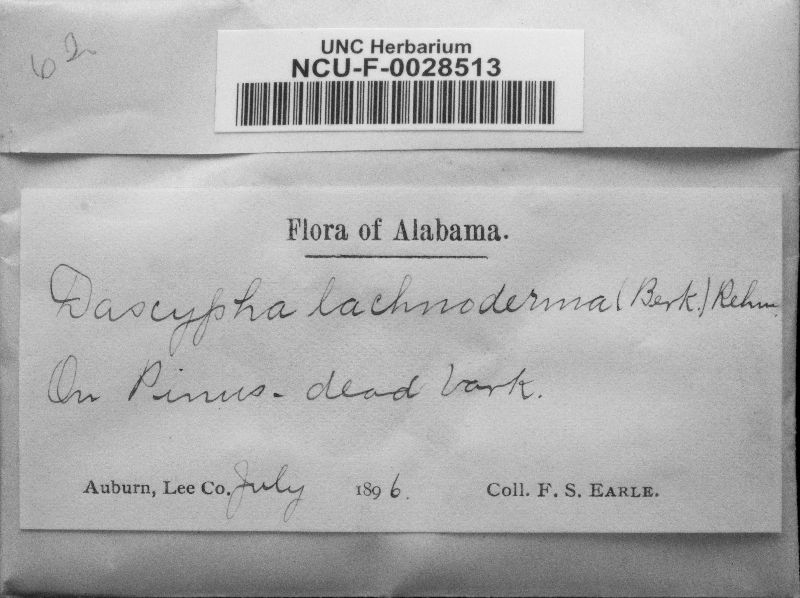 62
UNC Herbarium
NCU-F-0028513
Flora of Alabama.
Dascypha lachnoderma (Berk.) Rehm.
On Pinus - dead bark.
Auburn, Lee Co. July 1896. Coll. F. S. EARLE.